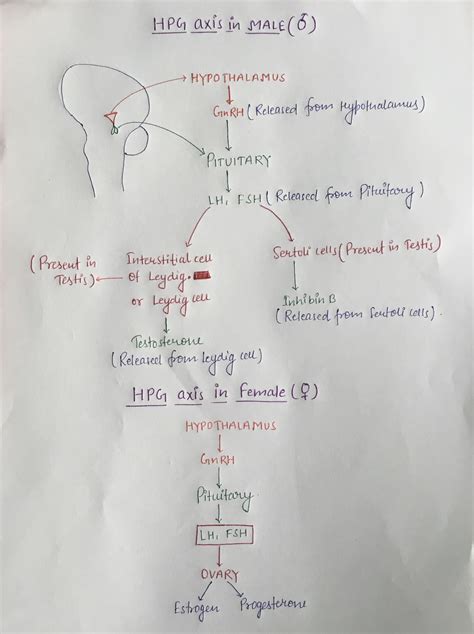 HPG axis in MALE (♂)
HYPOTHALAMUS
GnRH (Released from Hypothalamus)
PITUITARY
LH, FSH (Released from Pituitary)
(Present in
Testis)
Interstitial cell
of Leydig.
or Leydig cell
Sertoli cells (Present in Testis)
Inhibin B
(Released from Sertoli cells).
Testosterone
(Released from leydig cell)
HPG axis in Female (♀)
HYPOTHALAMUS
GnRH
Pituitary
LH, FSH
OVARY
Estrogen Progesterone